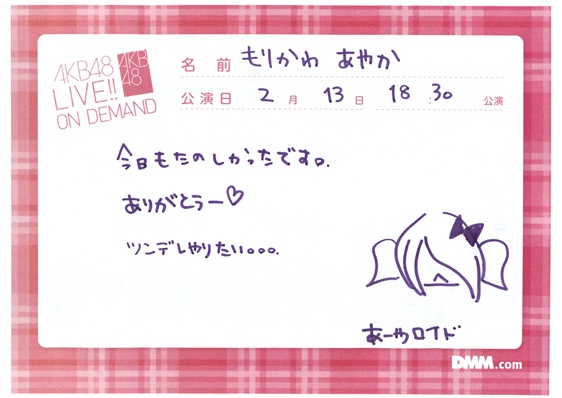 AKB48
LIVE!!
ON DEMAND
AKB
48
名前 もりかわ あやか
公演日 2月 13日 18:30 公演
今日もたのしかったです。
ありがとうー♡
ツンデレやりたい。。。
あーやロイド
DMM.com